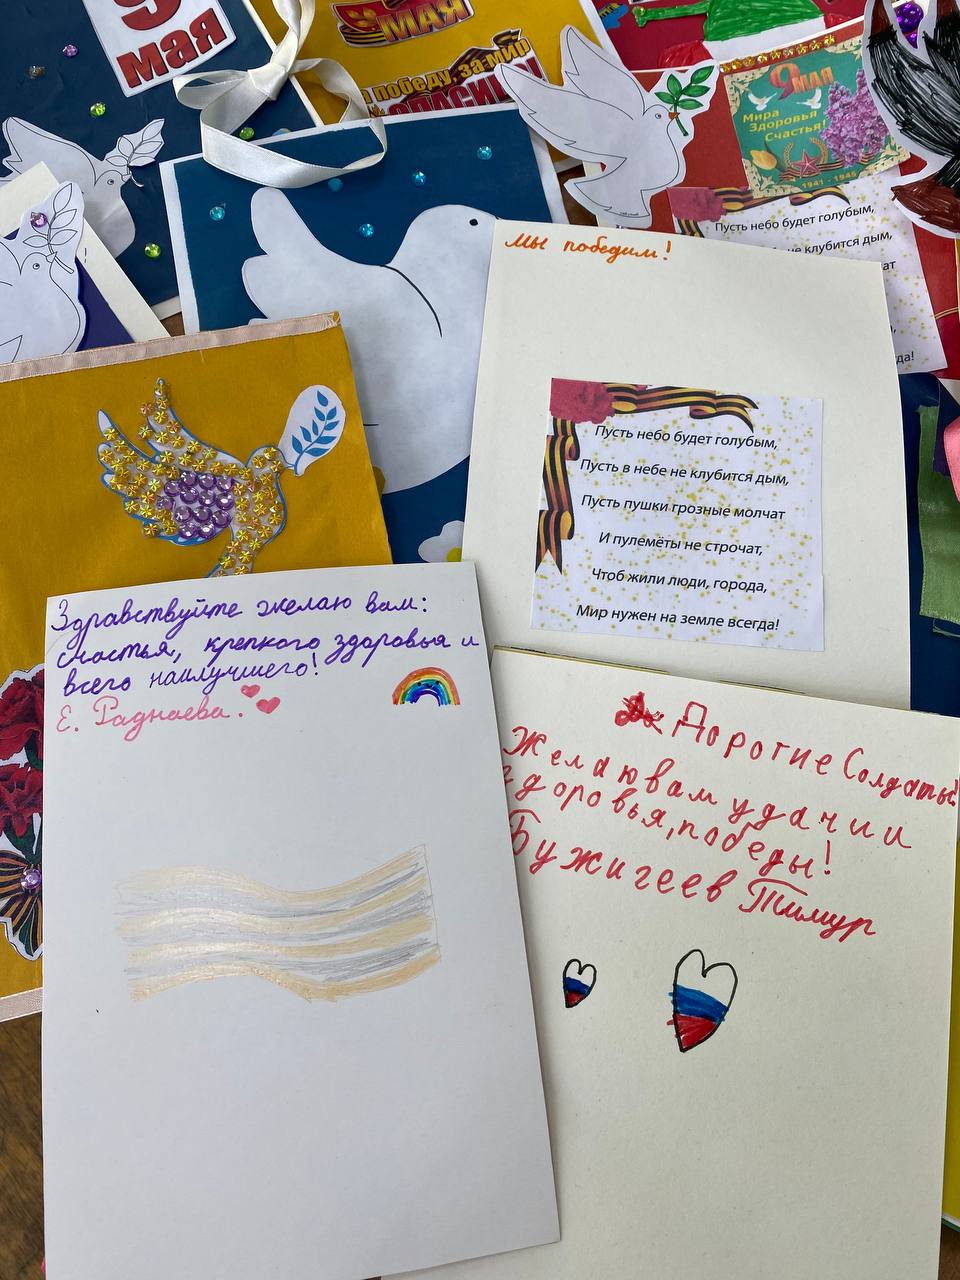 9
мая
МАЯ
победу, за мир
9 МАЯ
Мира
Здоровья
Счастья!
1941 - 1945
Пусть небо будет голубым,
не клубится дым,
Мы победим!
Пусть небо будет голубым,
Пусть в небе не клубится дым,
Пусть пушки грозные молчат
И пулемёты не строчат,
Чтоб жили люди, города,
Мир нужен на земле всегда!
Здравствуйте желаю вам:
счастья, крепкого здоровья и
всего наилучшего!
Е. Раднаева.
Дорогие Солдаты!
Желаю вам удачи и
здоровья, победы!
Бужигеев Тимур